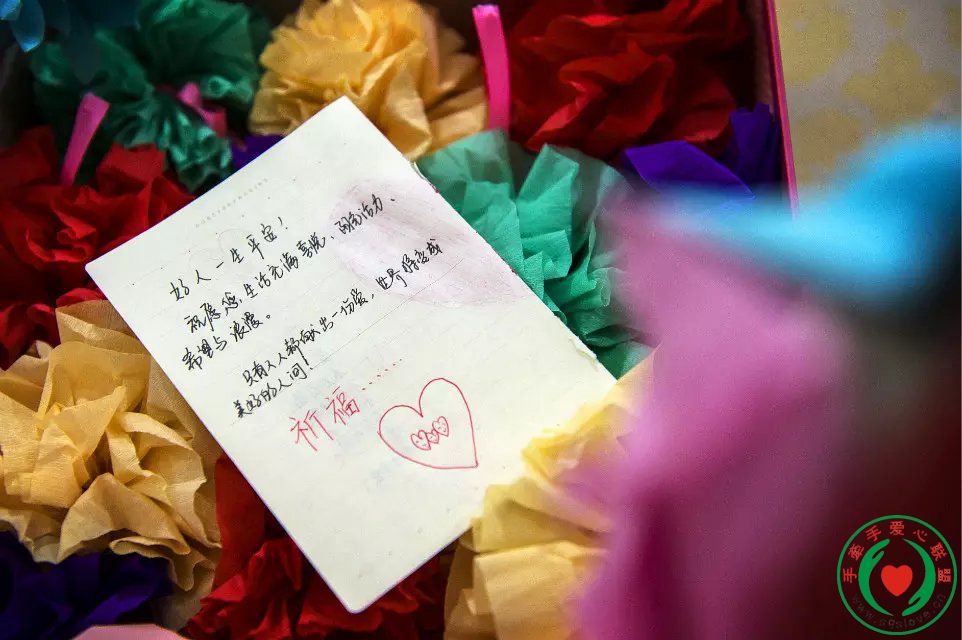 好人一生平安！
祝愿您：生活充满喜悦、阳光活力、
希望与浪漫。
只有人人都献出一份爱，世界将变成
美好的人间！
祈福……
手牵手爱心联盟